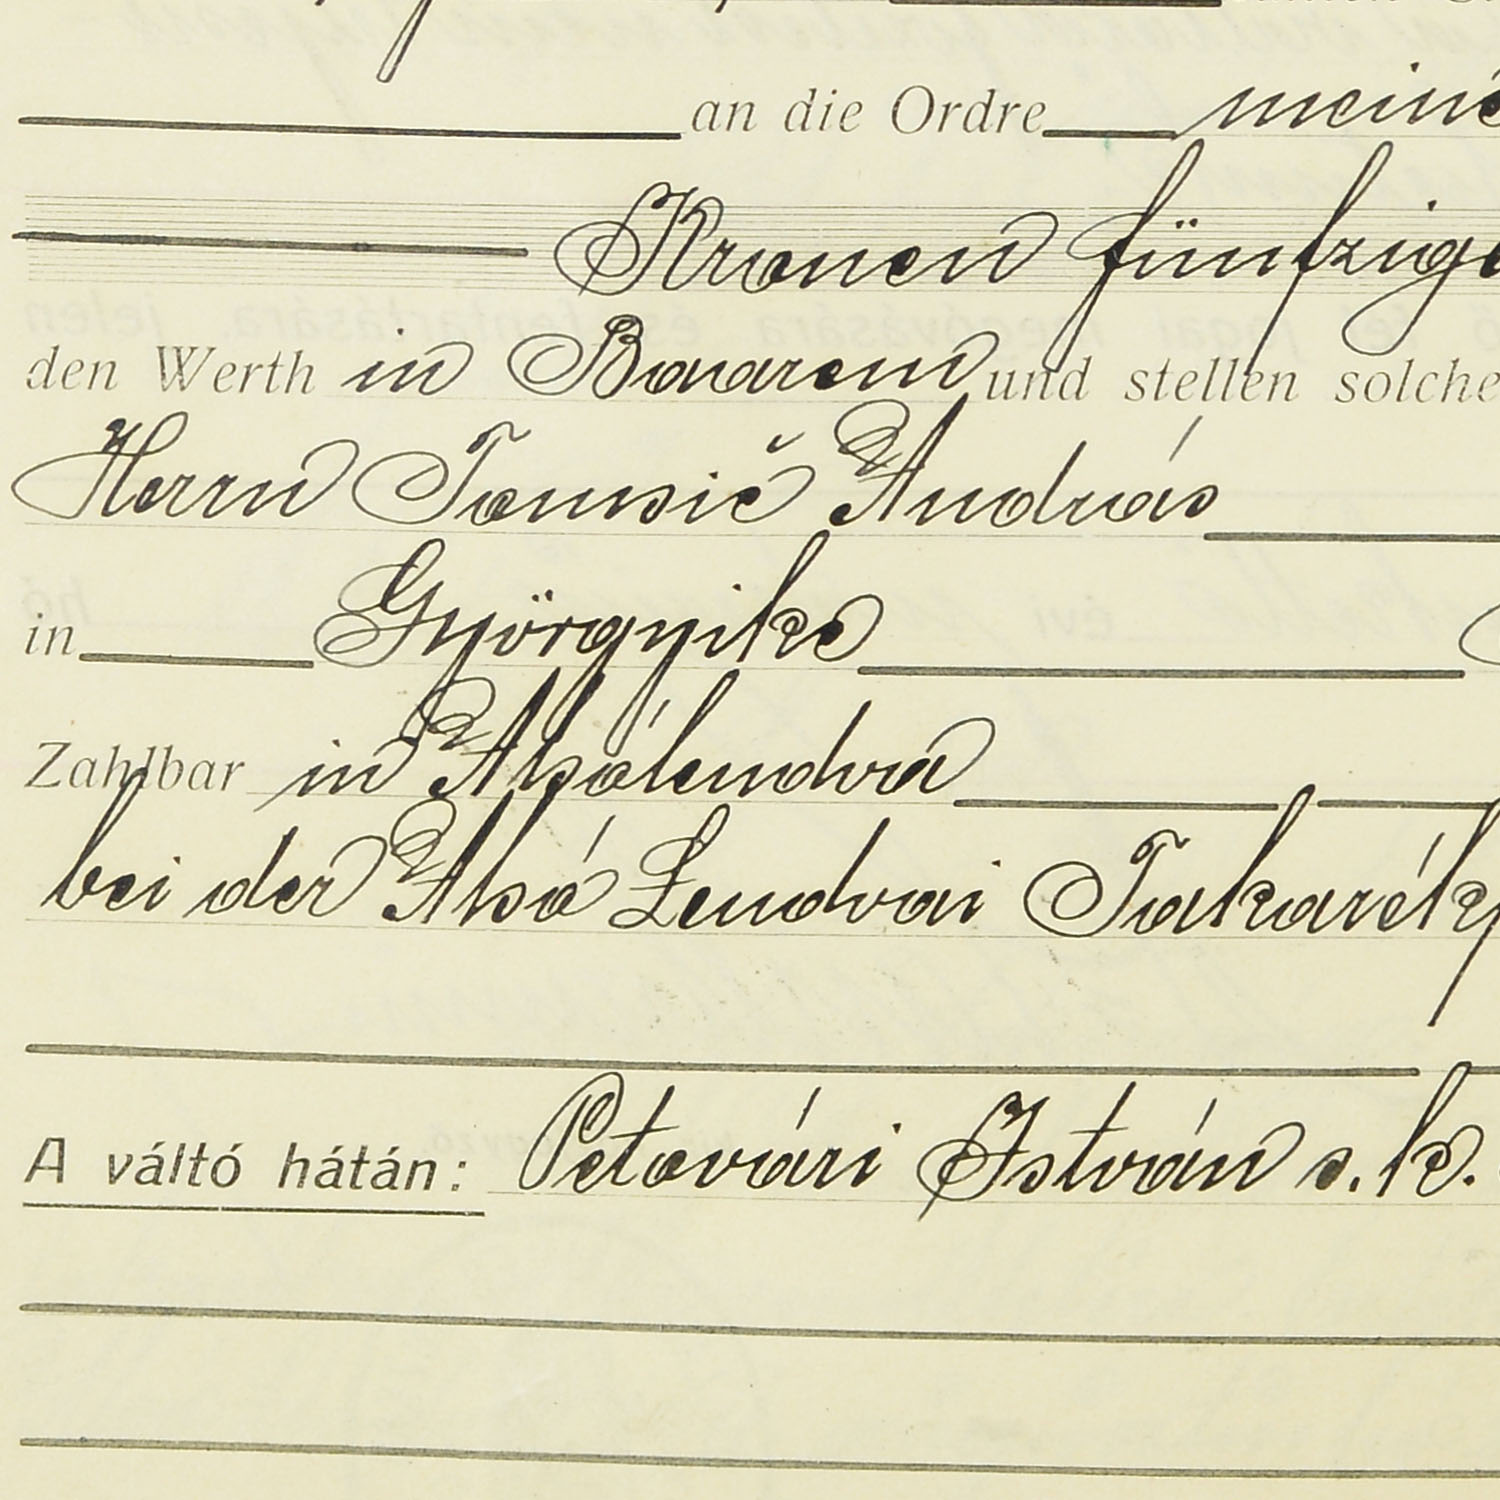 an die Ordre meine
Kronen fünfzig
den Werth in Baarem und stellen solche
Herrn Tomsič András
in Györgyike
Zahlbar in Alsólendva
bei der Alsó Lendvai Takarékp
A váltó hátán: Petovári István s. k.